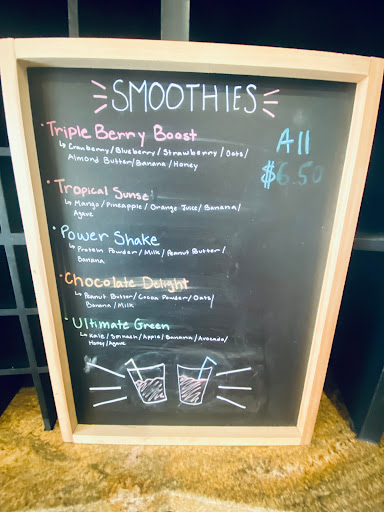 SMOOTHIES
Triple Berry Boost
Cranberry/Blueberry/Strawberry/Oats/
Almond Butter/Banana/Honey
All
$6.50
Tropical Sunset
Mango/Pineapple/Orange Juice/Banana/
Agave
Power Shake
Protein Powder/Milk/Peanut Butter/
Banana
Chocolate Delight
Peanut Butter/Cocoa Powder/Oats/
Banana/Milk
Ultimate Green
Kale/Spinach/Apple/Banana/Avocado/
Honey/Agave